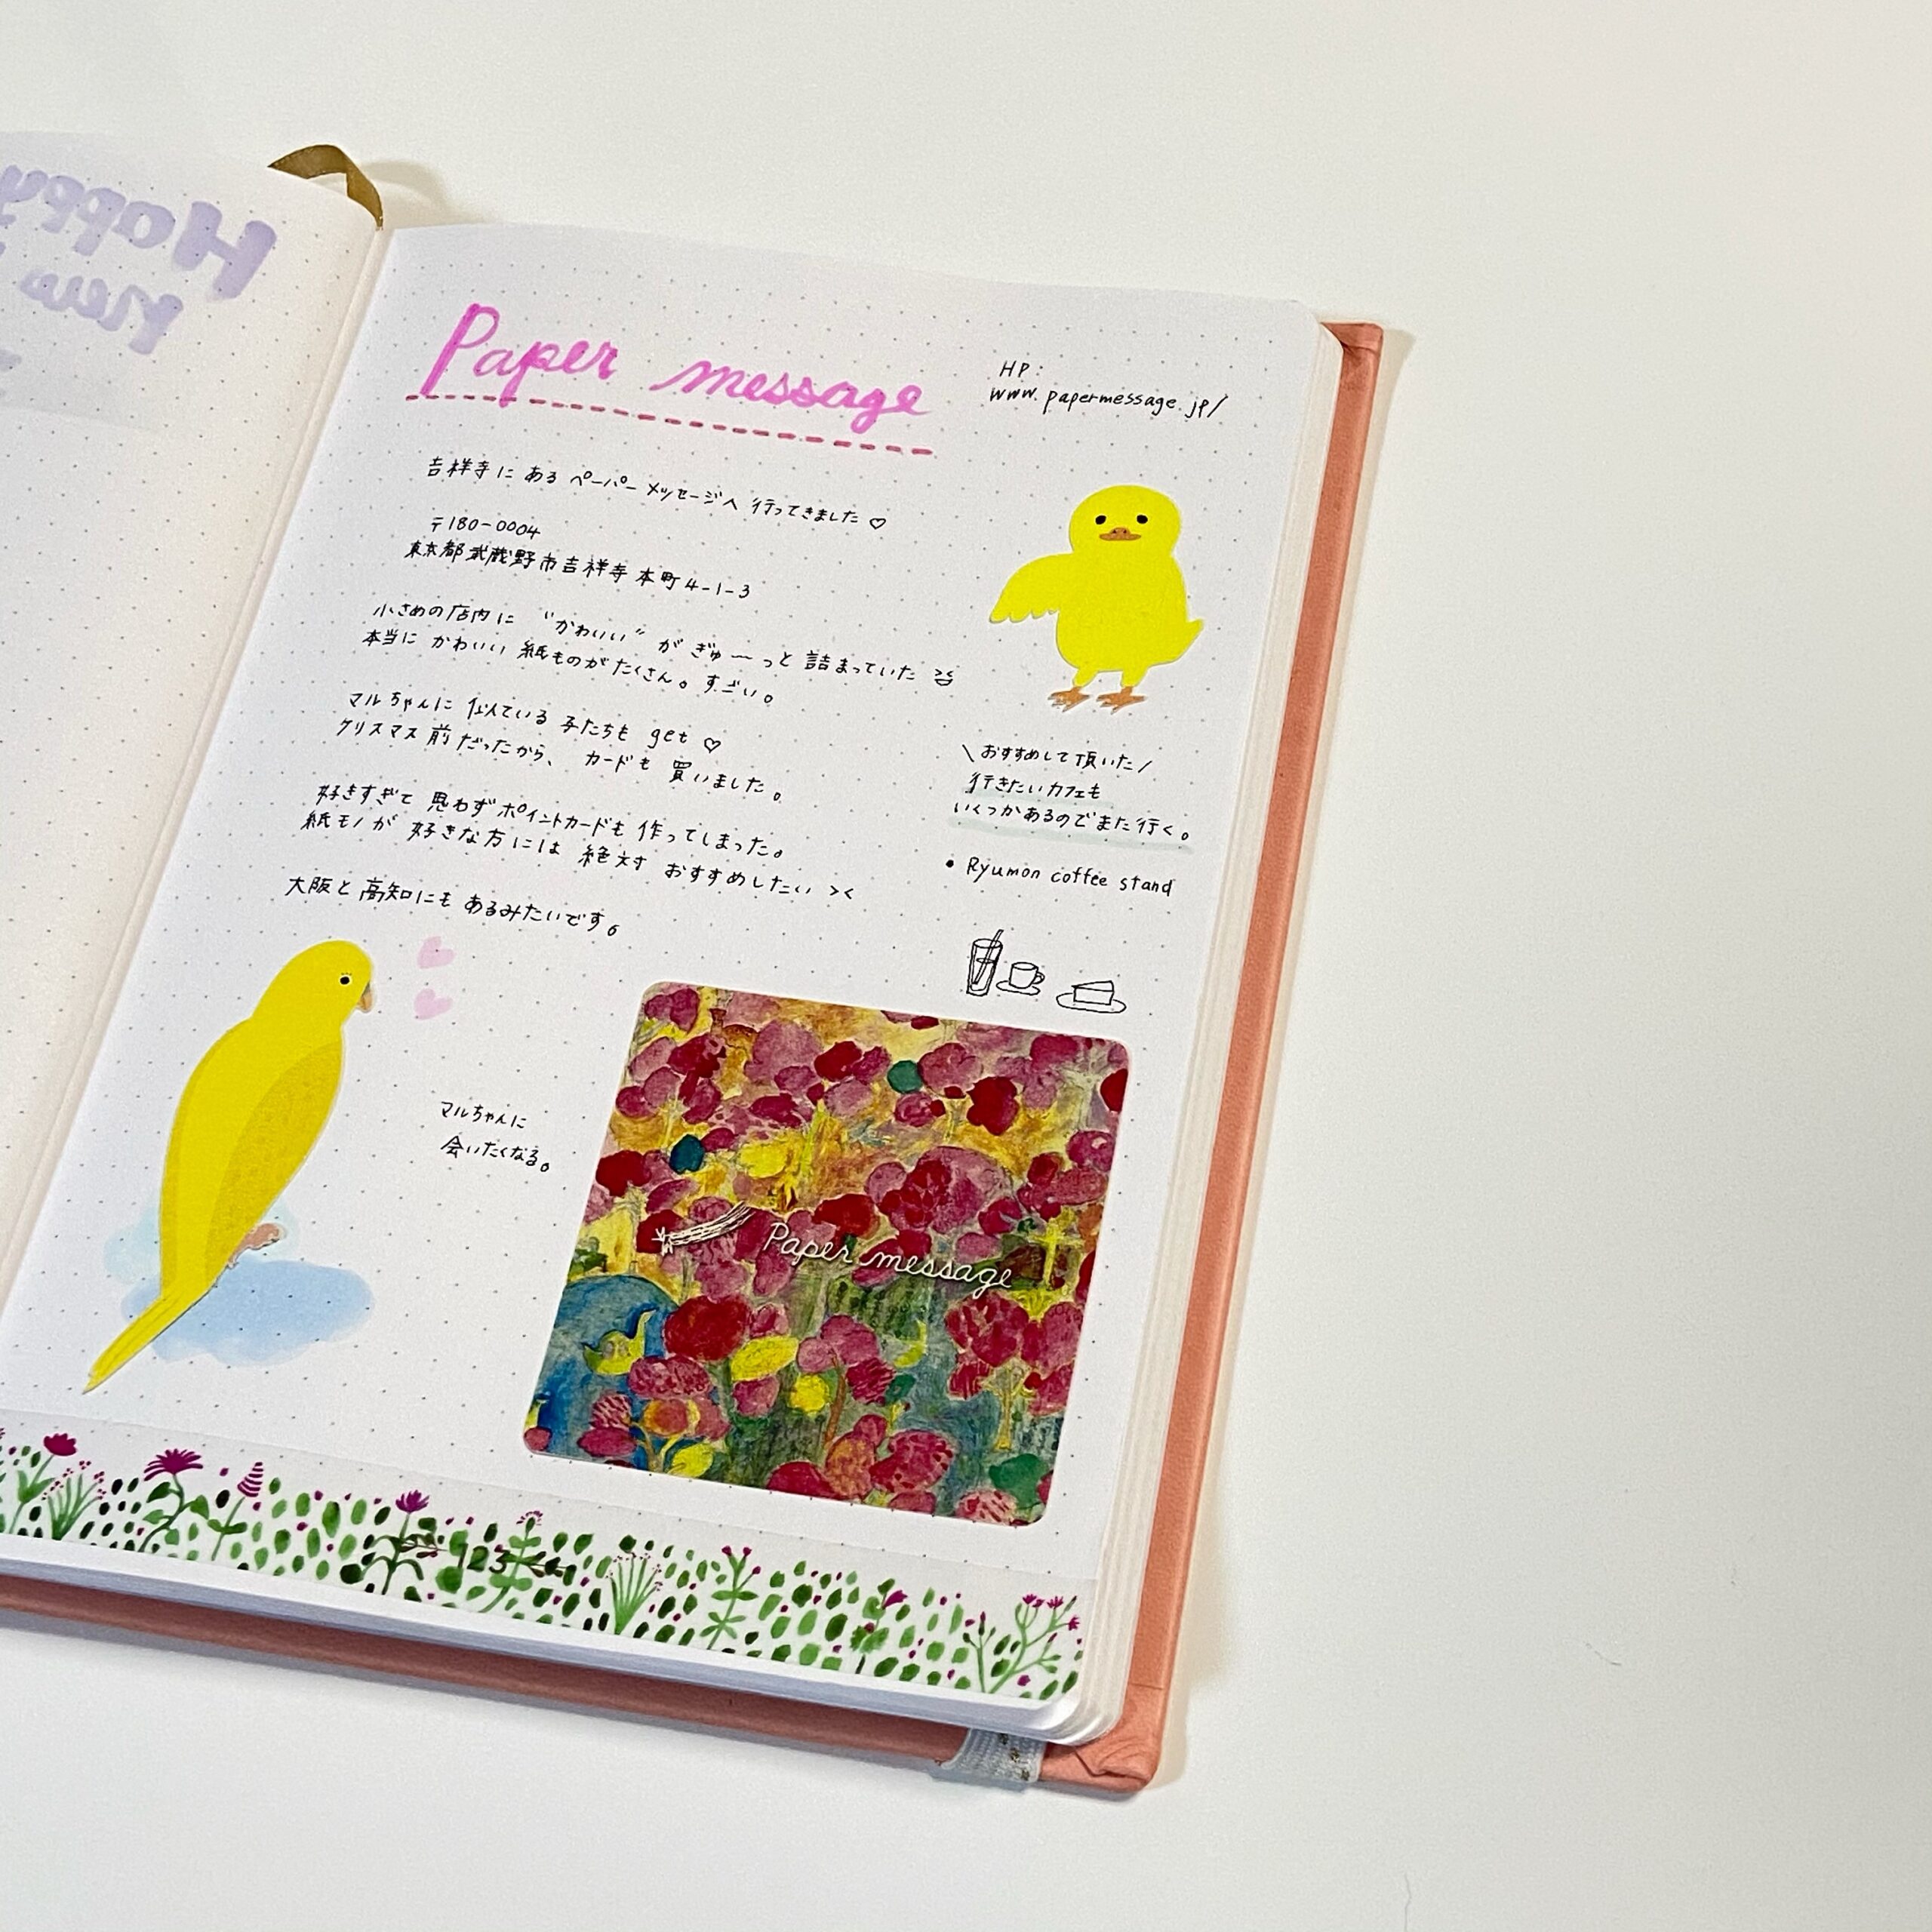 Happy
New
Paper message
HP:
www.papermessage.jp/
吉祥寺に ある ペーパーメッセージへ 行ってきました♡
〒180-0004
東京都武蔵野市吉祥寺本町4-1-3
小さめの店内に "かわいい" が ぎゅーっと 詰まっていた
本当に かわいい 紙ものがたくさん。すごい。
マルちゃんに 似ている 子たちも get ♡
クリスマス前だったから、 カードも 買いました。
好きすぎて 思わずポイントカードも 作ってしまった。
紙モノが 好きな方には 絶対 おすすめしたい ><
大阪と高知にも あるみたいです。
\ おすすめして頂いた /
行きたいカフェも
いくつかあるのでまた行く。
• Ryumon coffee stand
マルちゃんに
会いたくなる。
Paper message
123